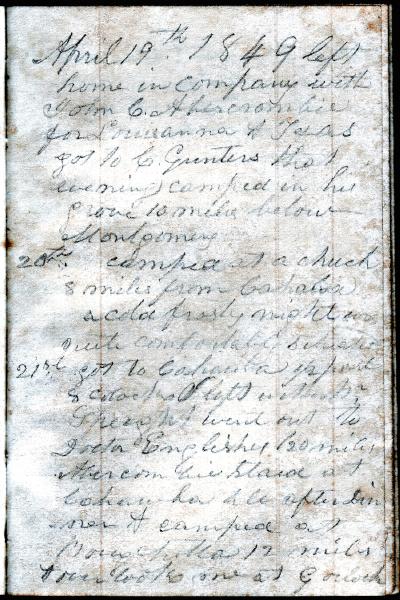 April 19th 1849 left
home in company with
John C. Abercrombie
for Louisanna & Texas
got to C. Gunters that
evening camped in his
grove 10 miles below
Montgomery
20th camped at a chuch
8 miles from Cahaba
a cold frosty night
quite comfortable
21st got to Cahawba
8 oclock I left with
went out to
Doctr Englishes 20 miles
Abercombie Staid at
Cahawba till after din
ner & camped at
12 miles
me at 9 oclock